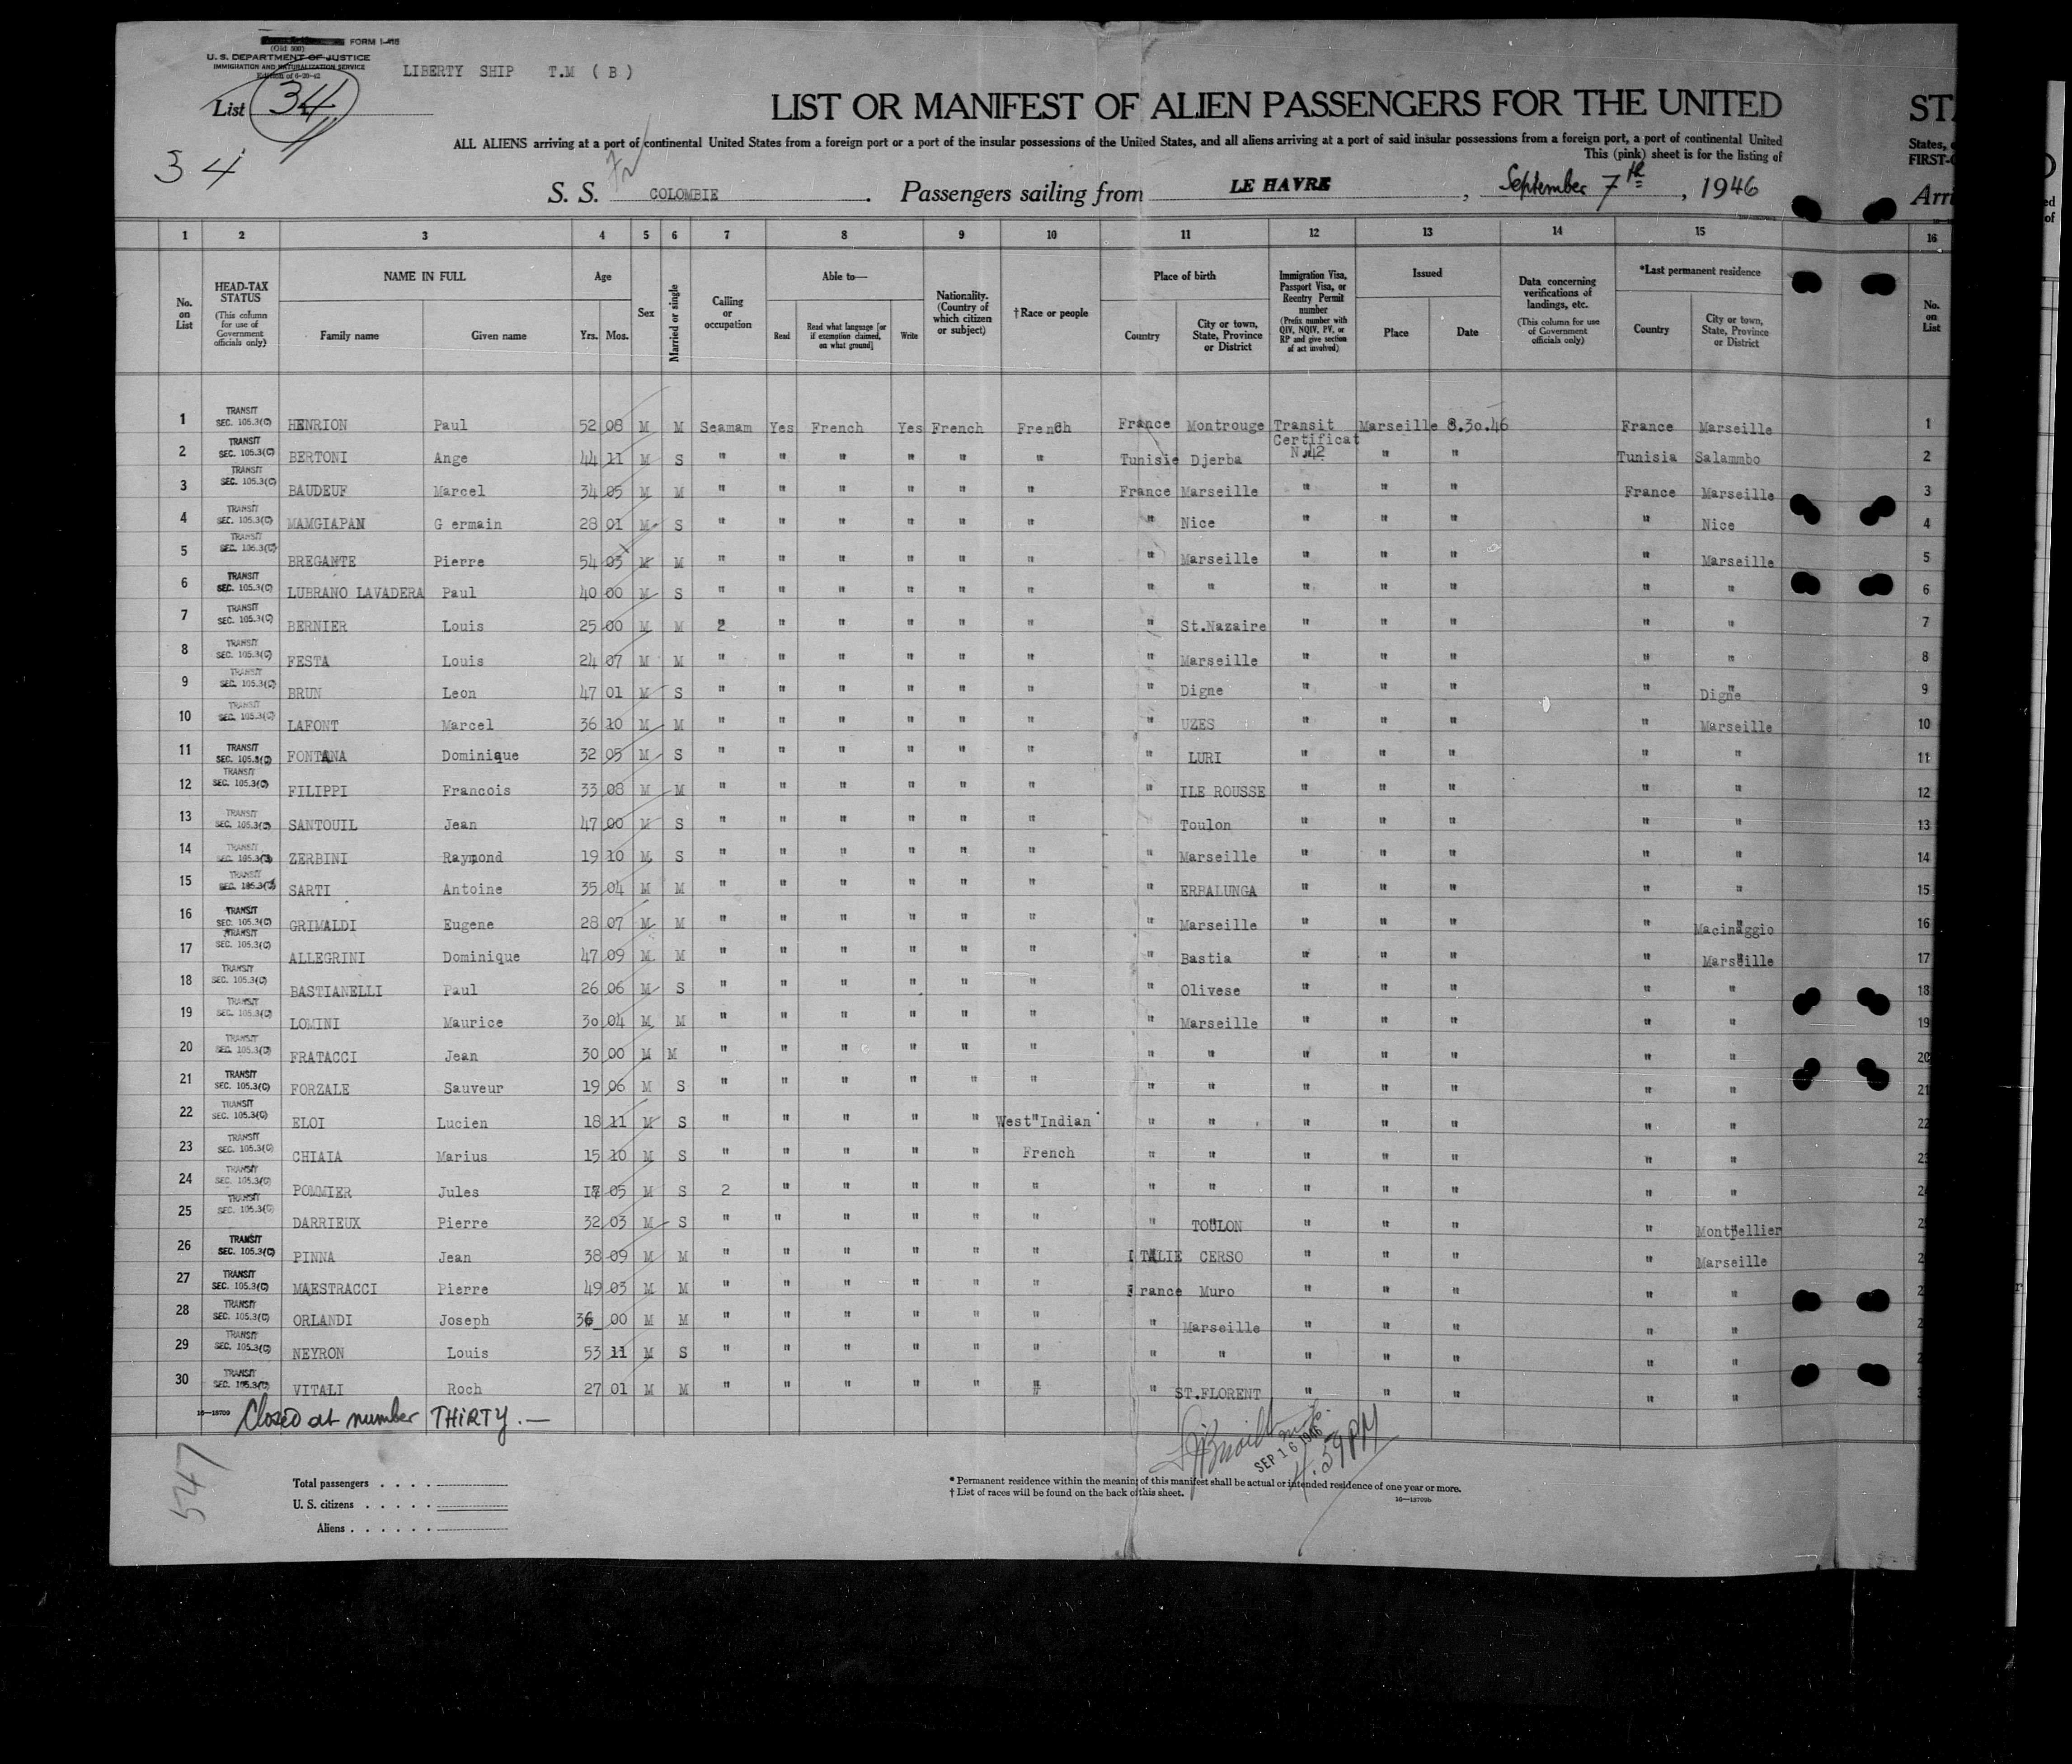 FORM I-418
(Old 500)
U. S. DEPARTMENT OF JUSTICE
IMMIGRATION AND NATURALIZATION SERVICE
Edition of 6-20-42
LIBERTY SHIP T.M ( B )
List 34
34
LIST OR MANIFEST OF ALIEN PASSENGERS FOR THE UNITED
STA
ALL ALIENS arriving at a port of continental United States from a foreign port or a port of the insular possessions of the United States, and all aliens arriving at a port of said insular possessions from a foreign port, a port of continental United
States,
This (pink) sheet is for the listing of
FIRST-C
S. S. COLOMBIE. Passengers sailing from LE HAVRE, September 7th, 1946
Arri
1 2 3 4 5 6 7 8 9 10 11 12 13 14 15 16
No. on List
HEAD-TAX STATUS (This column for use of Government officials only)
NAME IN FULL Family name Given name
Age Yrs. Mos.
Sex
Married or single
Calling or occupation
Able to— Read Read what language [or if exemption claimed, on what ground] Write
Nationality. (Country of which citizen or subject)
†Race or people
Place of birth Country City or town, State, Province or District
Immigration Visa, Passport Visa, or Reentry Permit number (Prefix number with QIV, NQIV, PV, or RP and give section of act involved)
Issued Place Date
Data concerning verifications of landings, etc. (This column for use of Government officials only)
*Last permanent residence Country City or town, State, Province or District
No. on List
1 TRANSIT SEC. 105.3(C) HENRION Paul 52 08 M M Seamam Yes French Yes French French France Montrouge Transit Certificat N.42 Marseille 8.30.46 France Marseille 1
2 TRANSIT SEC. 105.3(C) BERTONI Ange 44 11 M S " " " " " " Tunisie Djerba " " " Tunisia Salammbo 2
3 TRANSIT SEC. 105.3(C) BAUDEUF Marcel 34 05 M M " " " " " " France Marseille " " " France Marseille 3
4 TRANSIT SEC. 105.3(C) MAMGIAPAN G ermain 28 01 M S " " " " " " " Nice " " " " Nice 4
5 TRANSIT SEC. 105.3(C) BREGANTE Pierre 54 03 M M " " " " " " " Marseille " " " " Marseille 5
6 TRANSIT SEC. 105.3(C) LUBRANO LAVADERA Paul 40 00 M S " " " " " " " " " " " " " 6
7 TRANSIT SEC. 105.3(C) BERNIER Louis 25 00 M M 2 " " " " " " St.Nazaire " " " " " 7
8 TRANSIT SEC. 105.3(C) FESTA Louis 24 07 M M " " " " " " " Marseille " " " " " 8
9 TRANSIT SEC. 105.3(C) BRUN Leon 47 01 M S " " " " " " " Digne " " " " Digne 9
10 TRANSIT SEC. 105.3(C) LAFONT Marcel 36 10 M M " " " " " " " UZES " " " " Marseille 10
11 TRANSIT SEC. 105.3(C) FONTANA Dominique 32 05 M S " " " " " " " LURI " " " " " 11
12 TRANSIT SEC. 105.3(C) FILIPPI Francois 33 08 M M " " " " " " " ILE ROUSSE " " " " " 12
13 TRANSIT SEC. 105.3(C) SANTOUIL Jean 47 00 M S " " " " " " " Toulon " " " " " 13
14 TRANSIT SEC. 105.3(C) ZERBINI Raymond 19 10 M S " " " " " " " Marseille " " " " " 14
15 TRANSIT SEC. 105.3(C) SARTI Antoine 35 04 M M " " " " " " " ERBALUNGA " " " " " 15
16 TRANSIT SEC. 105.3(C) GRIMALDI Eugene 28 07 M M " " " " " " " Marseille " " " " Macinaggio 16
17 TRANSIT SEC. 105.3(C) ALLEGRINI Dominique 47 09 M M " " " " " " " Bastia " " " " Marseille 17
18 TRANSIT SEC. 105.3(C) BASTIANELLI Paul 26 06 M S " " " " " " " Olivese " " " " " 18
19 TRANSIT SEC. 105.3(C) LOMINI Maurice 30 04 M M " " " " " " " Marseille " " " " " 19
20 TRANSIT SEC. 105.3(C) FRATACCI Jean 30 00 M M " " " " " " " " " " " " " 20
21 TRANSIT SEC. 105.3(C) FORZALE Sauveur 19 06 M S " " " " " " " " " " " " " 21
22 TRANSIT SEC. 105.3(C) ELOI Lucien 18 11 M S " " " " " West Indian " " " " " " " 22
23 TRANSIT SEC. 105.3(C) CHIAIA Marius 15 10 M S " " " " " French " " " " " " " 23
24 TRANSIT SEC. 105.3(C) POMMIER Jules 17 05 M S 2 " " " " " " " " " " " " 24
25 TRANSIT SEC. 105.3(C) DARRIEUX Pierre 32 03 M S " " " " " " " TOULON " " " " Montpellier 2
26 TRANSIT SEC. 105.3(C) PINNA Jean 38 09 M M " " " " " " ITALIE CERSO " " " " Marseille 2
27 TRANSIT SEC. 105.3(C) MAESTRACCI Pierre 49 03 M M " " " " " " France Muro " " " " " 2
28 TRANSIT SEC. 105.3(C) ORLANDI Joseph 36 00 M M " " " " " " " Marseille " " " " " 2
29 TRANSIT SEC. 105.3(C) NEYRON Louis 53 11 M S " " " " " " " " " " " " " 2
30 TRANSIT SEC. 105.3(C) VITALI Roch 27 01 M M " " " " " " " ST.FLORENT " " " " " 3
16—18709 Closed at number THIRTY.—
SEP 16 1946
4.59 PM
547
Total passengers . . . .
U. S. citizens . . . . .
Aliens . . . . . .
* Permanent residence within the meaning of this manifest shall be actual or intended residence of one year or more.
† List of races will be found on the back of this sheet.
16—18709b